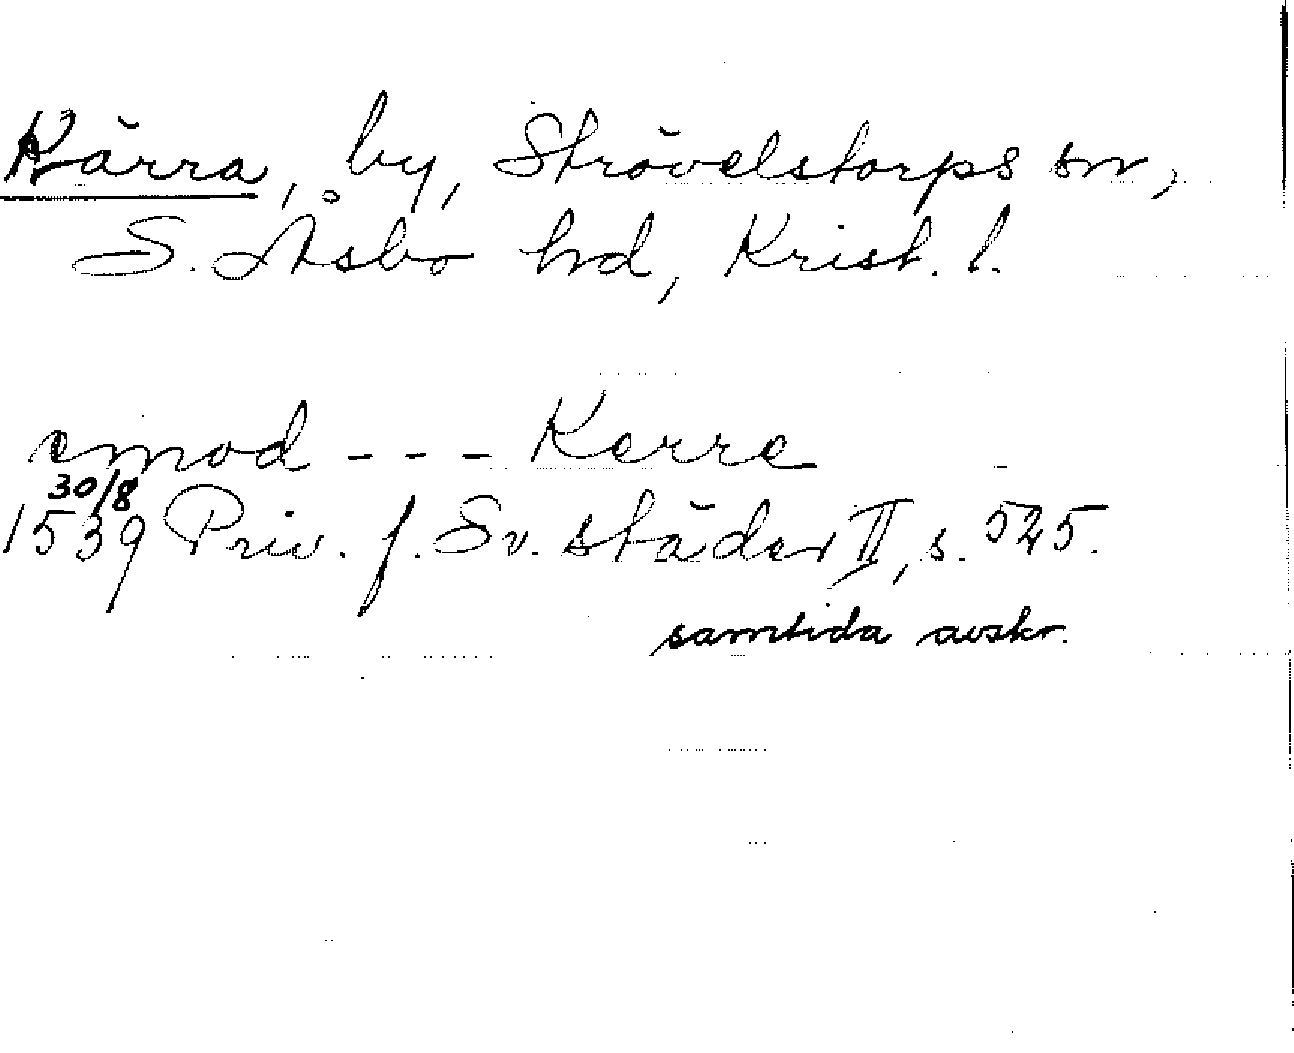 Kärra, by, Strövelstorps sn,
S. Åsbo hd, Krist. l.
emod - - - Kerre
30/8
1539 Priv. f. Sv. städer II, s. 525.
samtida avskr.